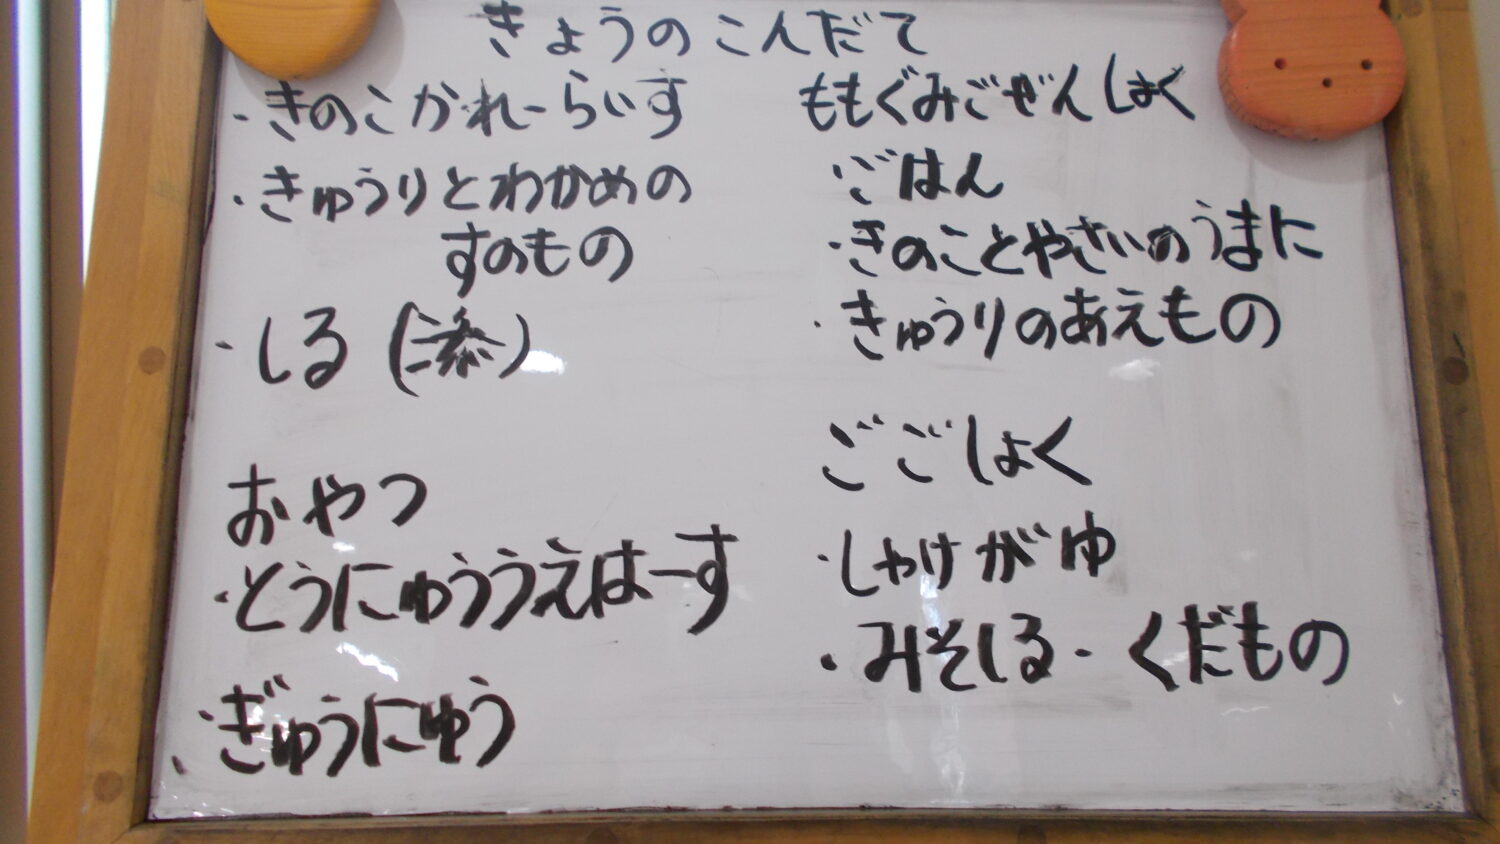 きょうのこんだて
・きのこかれーらいす
・きゅうりとわかめの
すのもの
・しる(添)
おやつ
・とうにゅううえはーす
・ぎゅうにゅう
ももぐみごぜんしょく
ごはん
・きのことやさいのうまに
・きゅうりのあえもの
ごごしょく
・しゃけがゆ
・みそしる・くだもの